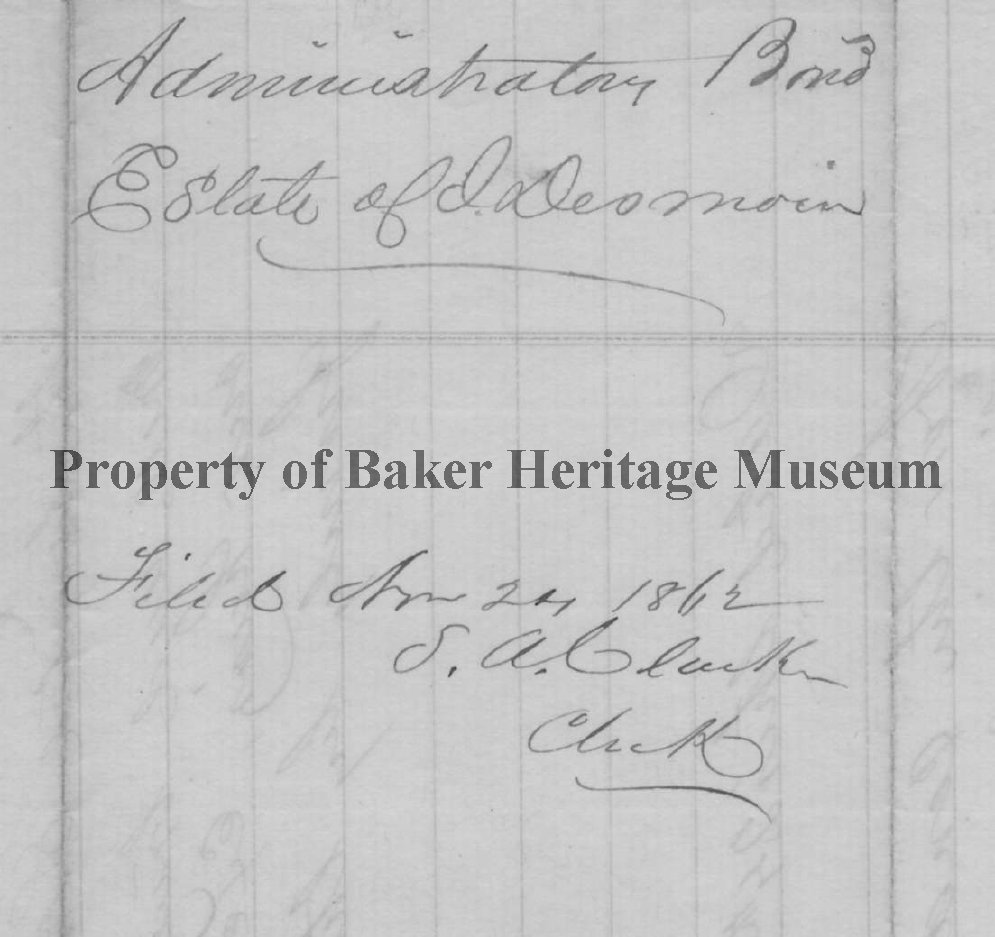 Administrators Bond
Estate of I. Desmoin
Property of Baker Heritage Museum
Filed Nov 24 1862
S. A. Clarke
Clerk